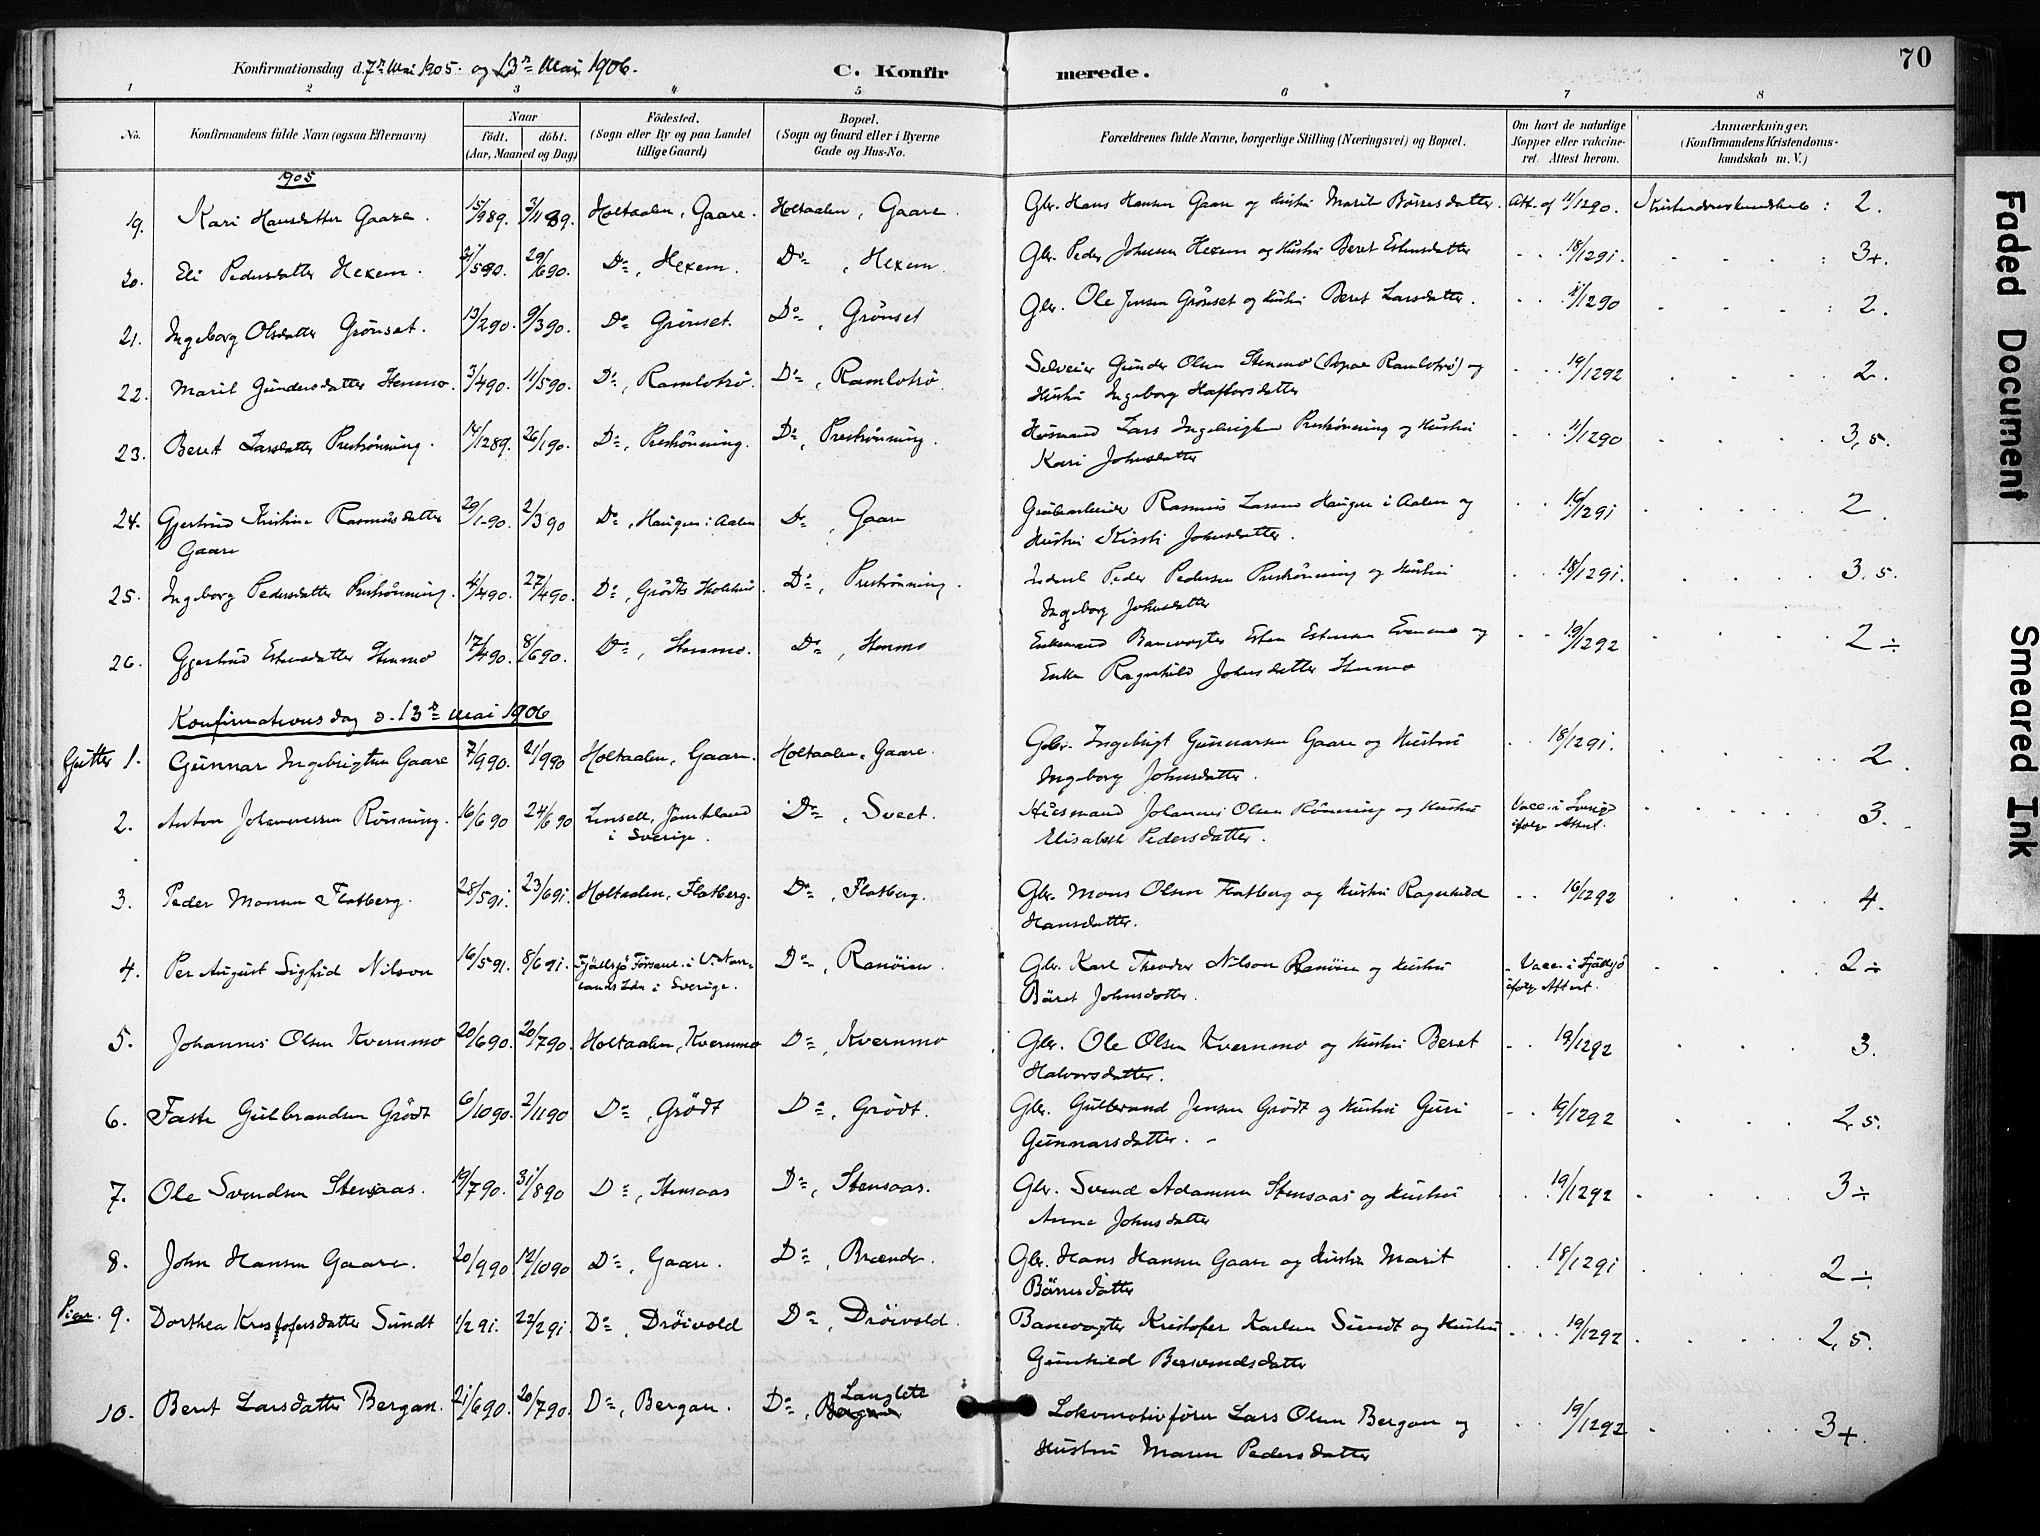 70
Konfirmationsdag d. 7de Mai 1905. og 13de Mai 1906.
C. Konfirmerede.
1 2 3 4 5 6 7 8
No. Konfirmandens fulde Navn (ogsaa Efternavn) Naar født. døbt. (Aar, Maaned og Dag) Fødested. (Sogn eller By og paa Landet tillige Gaard) Bopæl. (Sogn og Gaard eller i Byerne Gade og Hus-No. Forældrenes fulde Navne, borgerlige Stilling (Næringsvei) og Bopæl. Om havt de naturlige Kopper eller vakcineret. Attest herom. Anmærkninger. (Konfirmandens Kristendomskundskab m. V.)
1905
19. Kari Hansdatter Gaare. 15/9 89. 3/11 89. Holtaalen, Gaare. Holtaalen, Gaare. Gbr. Hans Hansen Gaare og Hustru Marit Børresdatter. Att. af 11/12 90. Kristendomskundskab: 2.
20. Eli Pedersdatter Hexem. 21/5 90. 29/6 90. Do, Hexem. Do, Hexem. Gbr. Peder Johnsen Hexem og Hustru Beret Estensdatter 18/12 91. 3+.
21. Ingeborg Olsdatter Grönset. 13/2 90. 9/3 90. Do Grönset. Do, Grönset Gbr. Ole Jensen Grönset og Hustru Beret Larsdatter. 11/12 90 2.
22. Marit Gundersdatter Stenmo. 3/4 90. 11/5 90. Do, Ramlotrö. Do, Ramlotrö. Selveier Gunder Olsen Stenmo (Ramlotrö) og
Hustru Ingeborg Haftorsdatter 19/12 92 2.
23. Beret Larsdatter Preströnning. 17/12 89. 26/1 90. Do, Preströnning. Do, Preströnning. Husmand Lars Ingebrigtsen Preströnning og Hustru
Kari Johnsdatter 11/12 90 3,5.
24. Gjertrud Kristine Rasmusdatter
Gaare 29/1 90. 2/3 90 Do, Haugen i Aalen Do, Gaare Grubearbeider Rasmus Larsen Haugen i Aalen og
Hustru Kirsti Johnsdatter. 16/12 91 2.
25. Ingeborg Pedersdatter Preströnning. 4/4 90. 27/4 90. Do, Grödts Do, Preströnning. Inderst Peder Pedersen Preströnning og Hustru
Ingeborg Johnsdatter 18/12 91. 3,5.
26. Gjertrud Estensdatter Stenmo 17/4 90. 8/6 90. Do, Stenmo. Do, Stenmo Enkemand Banevogter Esten Estensen Evenmo og
Enke Ragnhild Johnsdatter Stenmo 19/12 92 2÷
Konfirmationsdag d. 13de Mai 1906
Gutter 1. Gunnar Ingebrigtsen Gaare 7/9 90. 21/9 90 Holtaalen, Gaare. Holtaalen, Gaare. Gbr. Ingebrigt Gunnarsen Gaare og Hustru
Ingeborg Johnsdatter. 18/12 91. 2.
2. Anton Johannessen Rönning. 16/6 90 24/6 90 Linsell, Jämtland
i Sverige. Do, Sveet. Husmand Johannes Olsen Rönning og Hustru
Elisabeth Pedersdatter. Vacc. i Sverige
ifölge Attest. 3.
3. Peder Monsen Flatberg. 28/5 91. 23/6 91. Holtaalen, Flatberg. Do, Flatberg. Gbr. Mons Olsen Flatberg og Hustru Ragnhild
Hansdatter. 16/12 92 4.
4. Per August Sigfrid Nilson 16/5 91. 8/6 91. Fjällsjö Församl. i V. Norrlands Län i Sverige. Do, Ranöien. Gbr. Karl Theodor Nilson Ranöien og Hustru
Bäret Johnsdotter. Vacc. i Fjällsjö
ifölge Attest. 2÷
5. Johannes Olsen Kvernmo 20/6 90. 20/7 90. Holtaalen, Kvernmo Do, Kvernmo Gbr. Ole Olsen Kvernmo og Hustru Beret
Halvorsdatter. 19/12 92 3.
6. Faste Gulbrandsen Grödt 6/10 90. 2/11 90 Do, Grödt Do, Grödt. Gbr. Gulbrand Jensen Grödt og Hustru Guri
Gunnarsdatter. 19/12 92 2,5.
7. Ole Svendsen Stensaas. 19/7 90. 31/8 90 Do, Stensaas Do, Stensaas. Gbr. Svend Adamsen Stensaas og Hustru
Anne Johnsdatter 19/12 92 3÷
8. John Hansen Gaare. 20/9 90 12/10 90 Do, Gaare. Do, Brænde. Gbr. Hans Hansen Gaare og Hustru Marit
Börresdatter 18/12 91 2÷
Piger. 9. Dorthea Kristofersdatter Sundt 1/2 91. 22/2 91 Do, Dröivold Do, Dröivold. Banevogter Kristofer Karlsen Sundt og Hustru
Gunhild Bersvendsdatter 19/12 92 2,5.
10. Beret Larsdatter Bergan. 21/6 90. 20/7 90. Do, Bergan. Do, Langlete Bergan Lokomotivförer Lars Olsen Bergan og
Hustru Maren Pedersdatter 19/12 92 3+
Faded Document
Smeared Ink